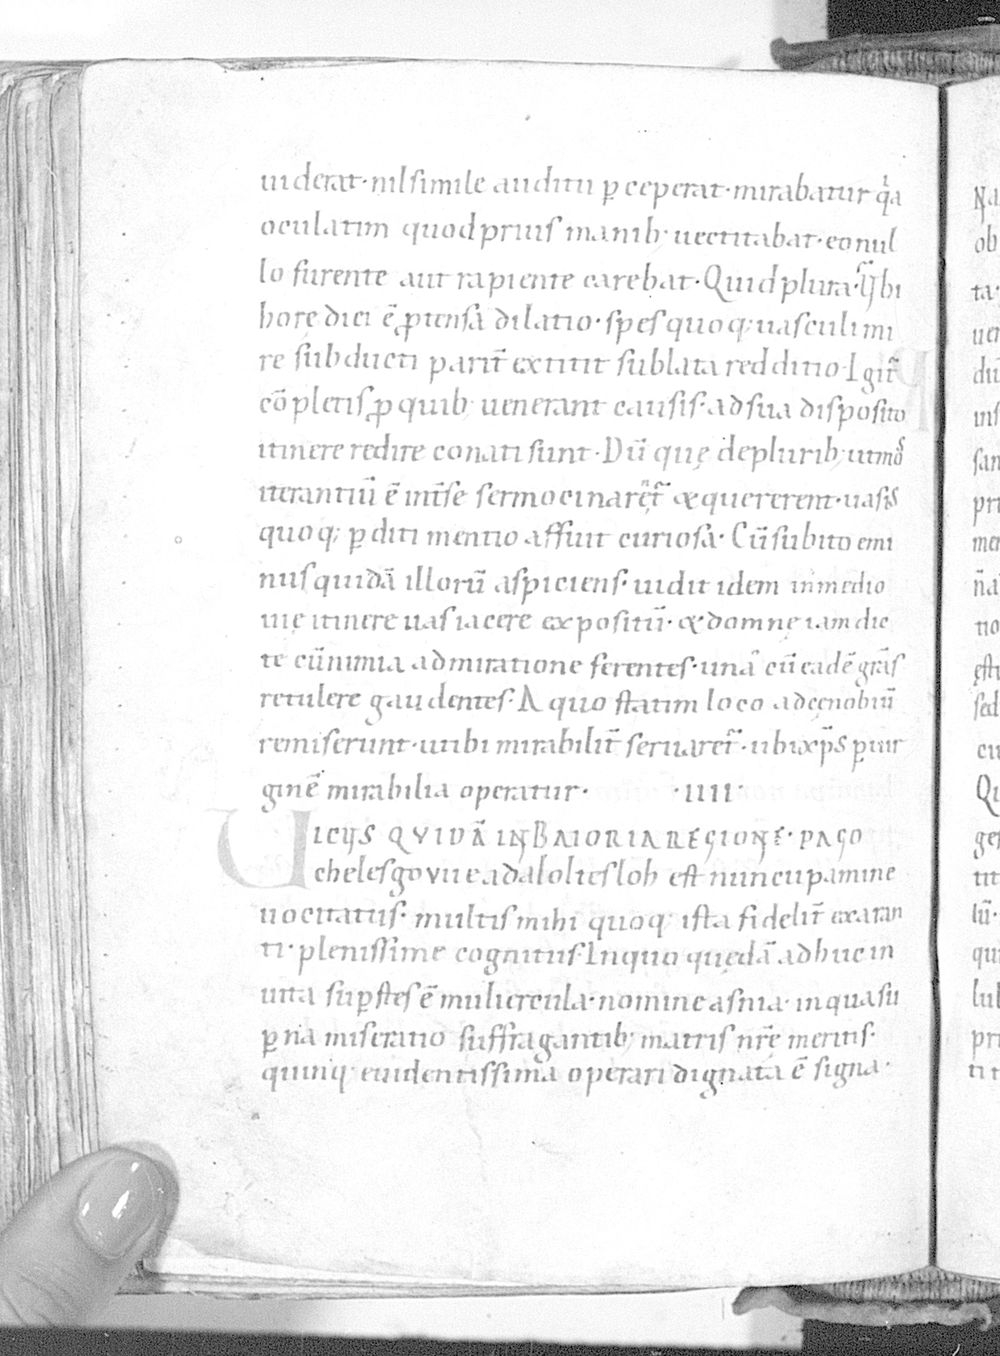 uiderat · nil simile auditu ꝑceperat · mirabatur qia
oculatim quod prius manib; uectitabat · eo nul
lo furente aut rapiente carebat · Quid plura · Ybi
hore diei ē ꝓtensa dilatio · spes quoq; uasculi mi
re subducti parit̄ extitit sublata redditio · Igit̄
cōpletis ꝓ quib; uenerant causis · ad sua disposito
itinere redire conati sunt · Dū quę de plurib; ut mos
iterantiū ē int̄ se sermocinarēt̄ & quererent · uasis
quoq; ꝑditi mentio affuit curiosa · Cū subito emi
nus quidā illorū aspiciens · uidit idem in medio
uię itinere uas iacere expositū · & domnę iam dic
te cū nimia admiratione ferentes · una cū eadē grās
retulere gaudentes · A quo statim loco ad cęnobiū
remiserunt · ut ibi mirabilit̄ seruaret̄ · ubi xp̄s ꝑ uir
ginē mirabilia operatur · · IIII ·
UICUS QVIDĀ IN BAIORIA REGIONE · PAGO
chelesgovue adaloltesloh est nuncupamine
uocitatus · multis mihi quoq; ista fidelit̄ exaran
ti · plenissime cognitus · In quo quędā adhuc in
uita suꝑstes ē muliercula · nomine asnia · in qua su
ꝑna miseratio suffragantib; matris nr̄e meritis ·
quinq; euidentissima operari dignata ē signa ·